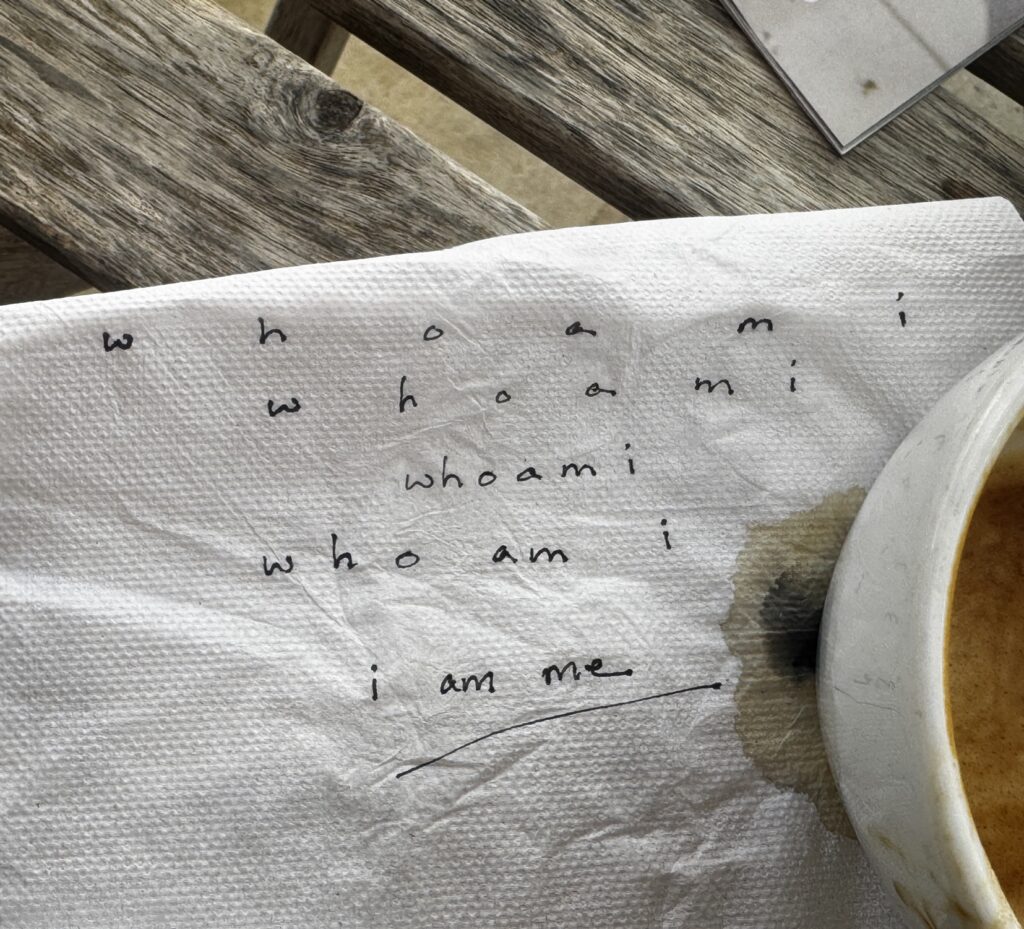 w h o a m i
w h o a m i
whoami
who am i
i am me